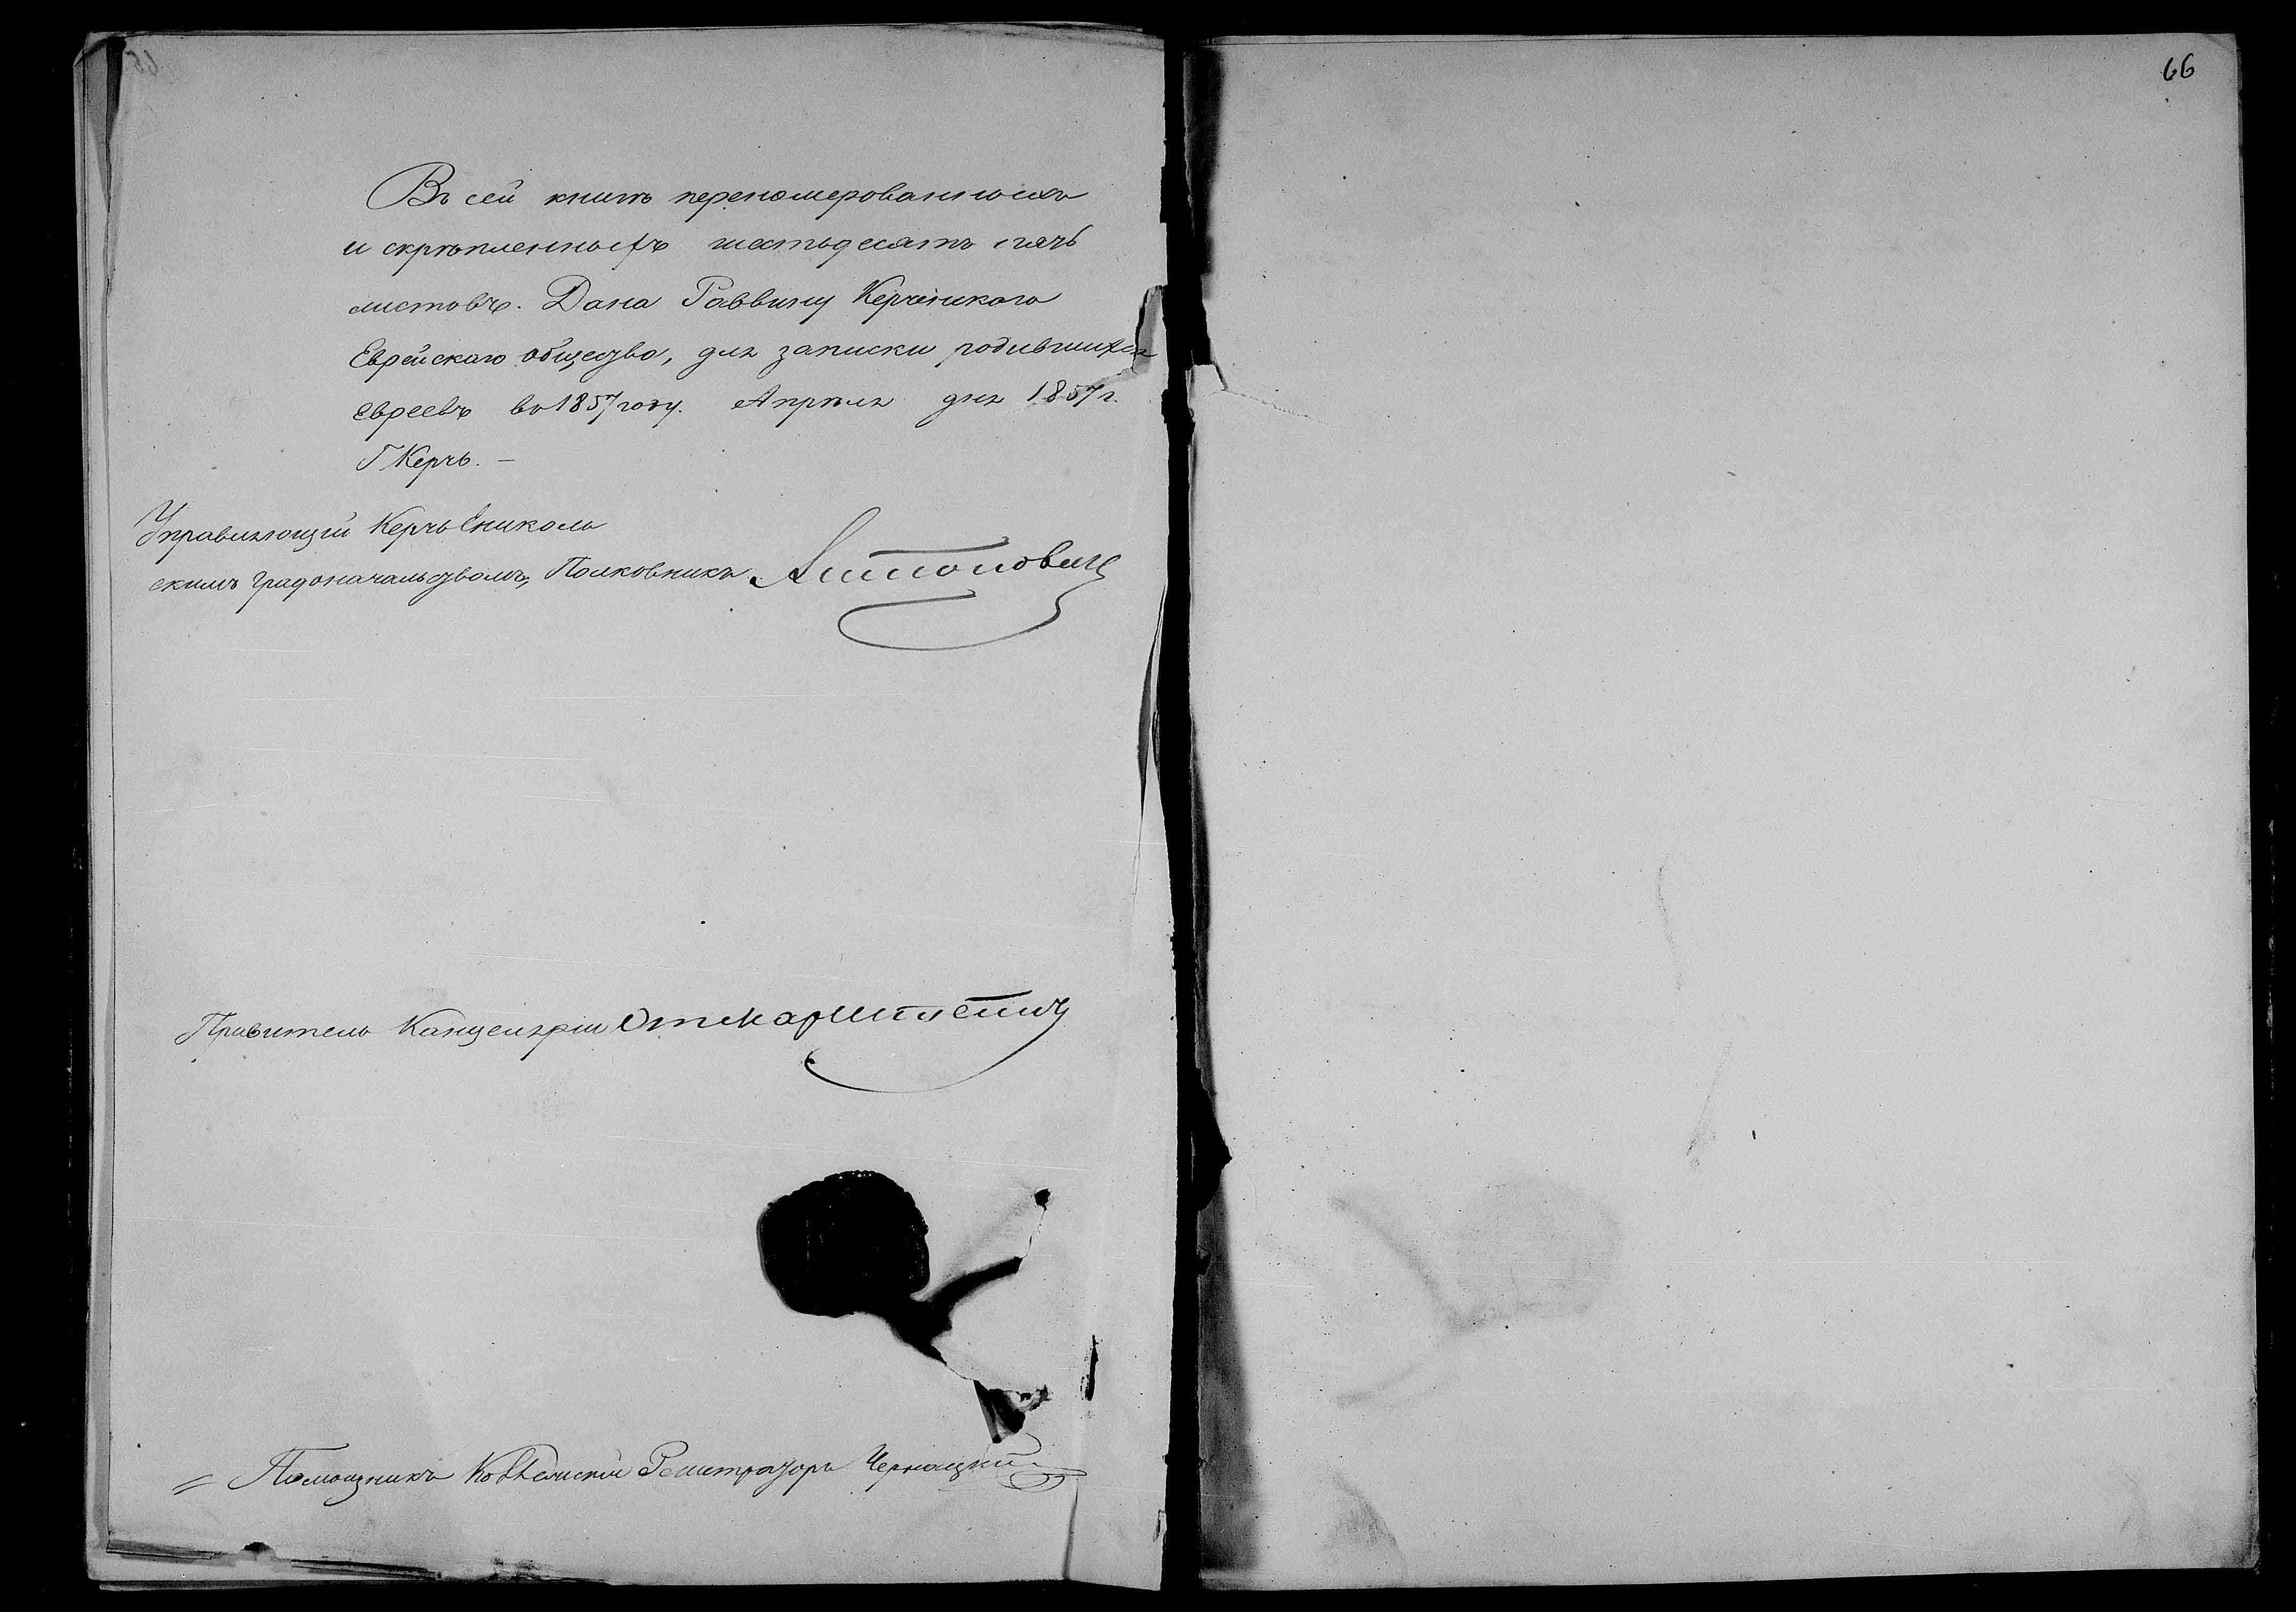 66
Въ сей книгѣ перенумерованныхъ
и скрѣпленныхъ шестьдесятъ пять
листовъ. Дана Раввину Керченскаго
Еврейскаго общества, для записки родившихся
евреевъ въ 1857 году. Апрѣля дня 1857 г.
Г Керчь. —
Управляющій Керчь Ениколь
скимъ Градоначальствомъ, Полковникъ Антоновичъ
Правитель Канцеляріи
Помощникъ Коллежскій Регистраторъ Чернецкій